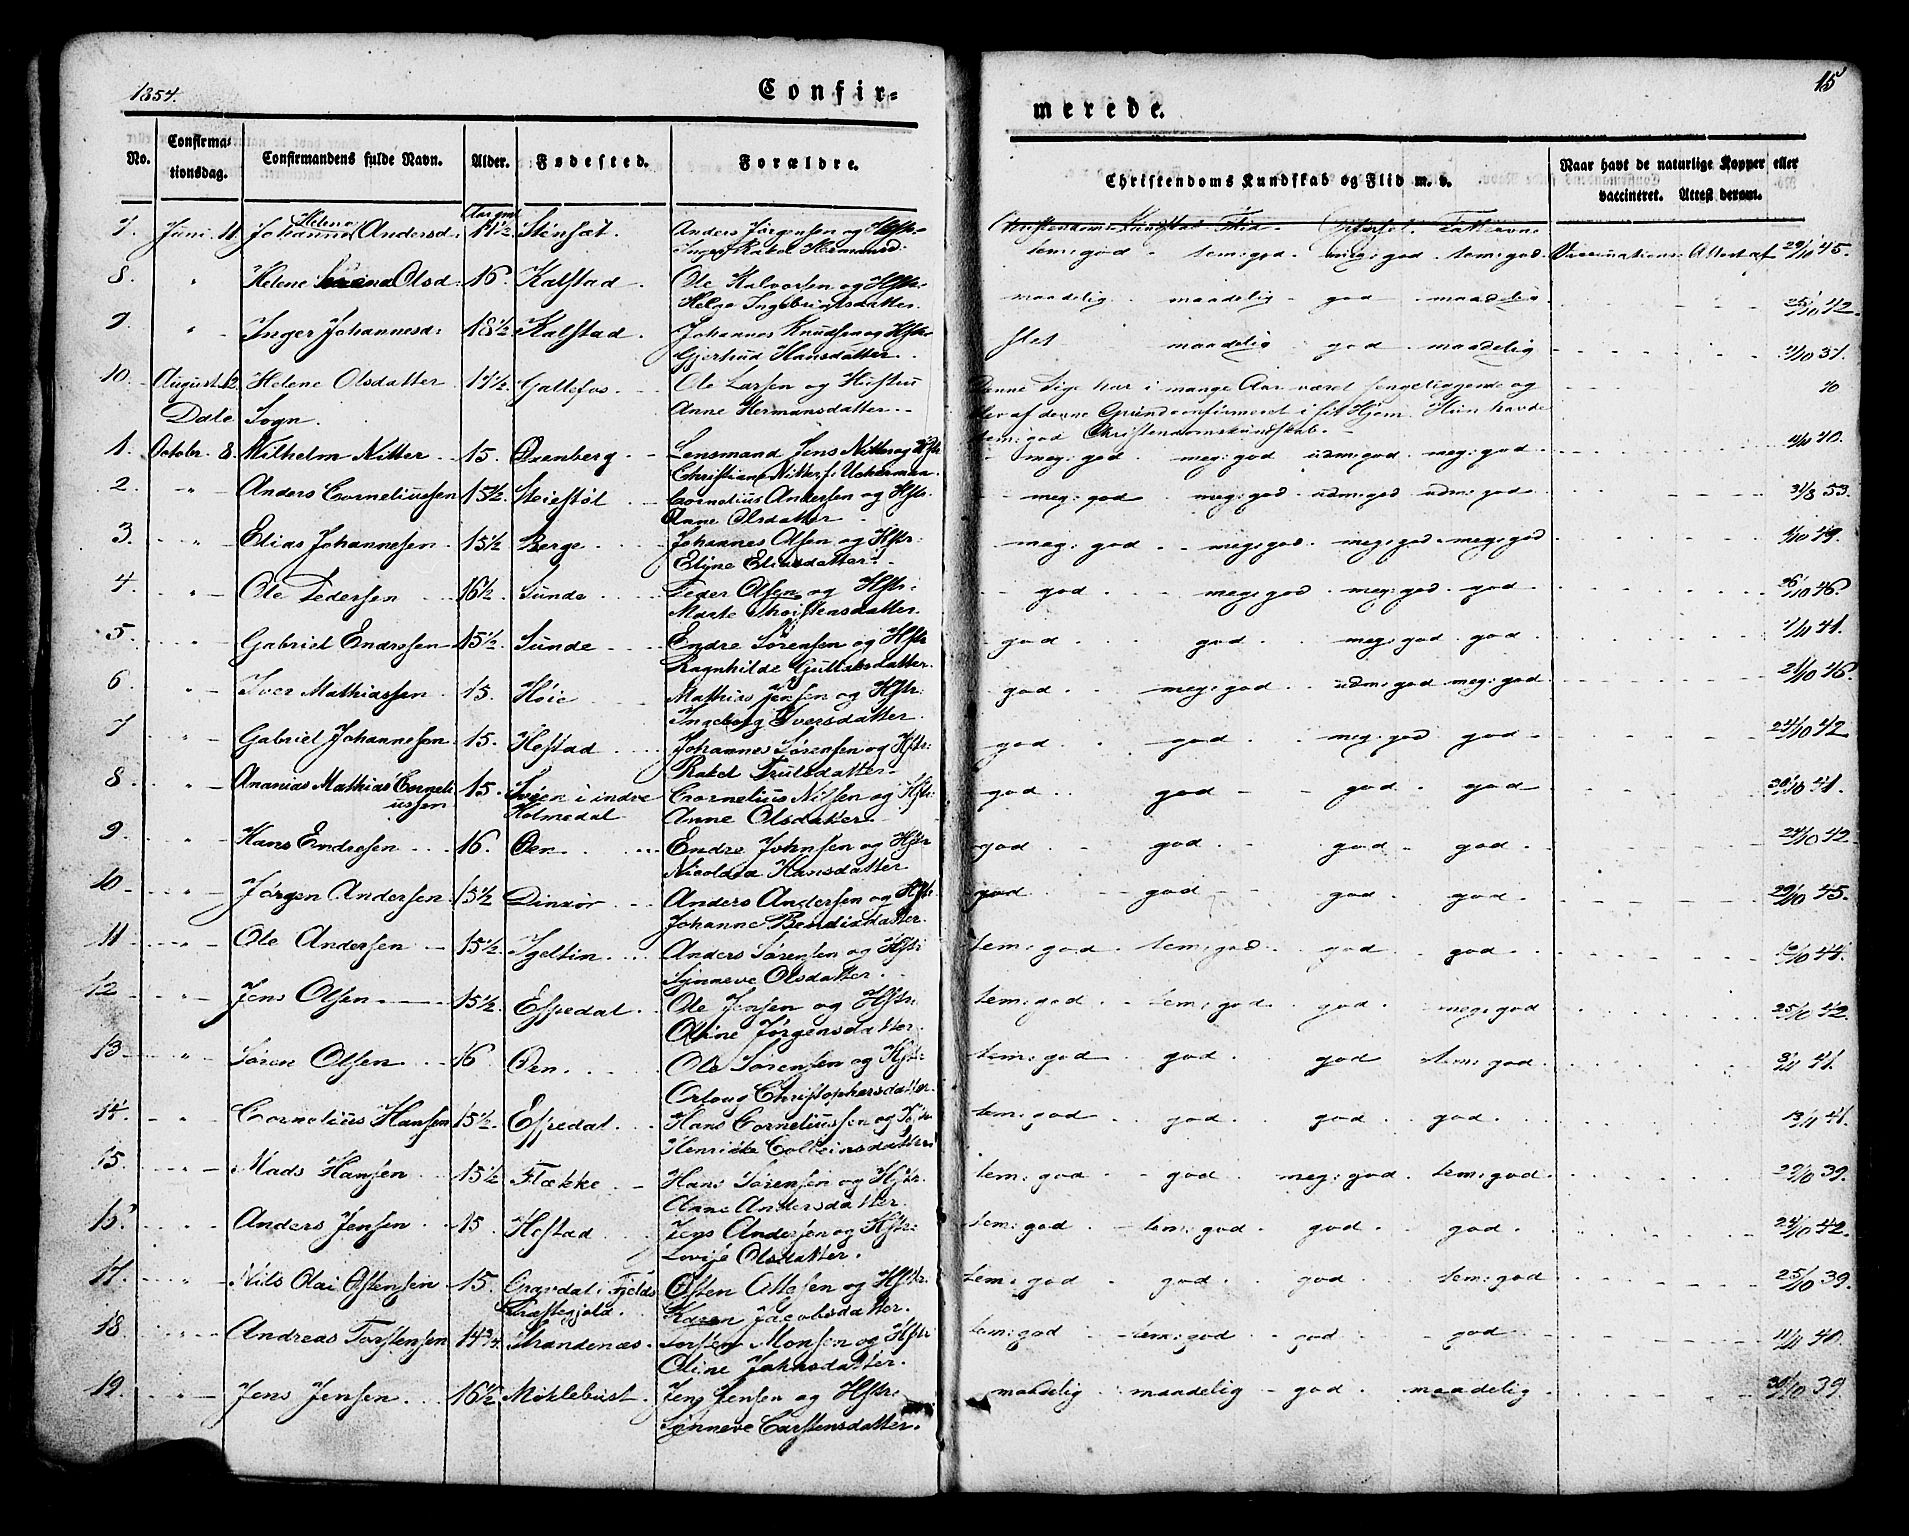 1854.
Confir-
merede.
15
No.
Confirma-
tionsdag.
Confirmandens fulde Navn.
Alder.
Fødested.
Forældre.
Christendoms Kundskab og Flid m. v.
Naar havt de naturlige Kopper eller
vaccineret. Attest derom.
Helene
7. Juni 11 Johanna Andersd. Anders Jörgensen og Hstr.
tem: god. tem: god. meg: god tem: god. Vaccinations Attest af 29/10 45.
8. " Helene Olsd. 16. Kalstad. Ole Halvorsen og Hstr.
Helga Ingebrigtsdatter.
maadelig. maadelig god maadelig 12
9. " Inger Johannesd: 18½ Kalstad. Johannes Knudsen og Hstr.
Gjertrud Hansdatter.
slet maadelig god maadelig
10. August 12. Helene Olsdatter 17½. Gallefos Ole Larsen og Hustru
Anne Hermansdatter.
Denne Pige har i mange Aar været sengeliggende og
blev af denne Grund confirmeret i sit Hjem. Hun havde
tem: god Christendomskundskab.
Dale Sogn.
1. Octobr. 8. Wilhelm Nitter 15. Lensmand Jens Nitter og Hstr
Christiane Nitter f. Ucherman.
meg: god. meg: god udm: god. meg: god. 40.
2 " Anders Corneliussen 15½. Steiestøl Cornelius Andersen og Hstr.
Anne Olsdatter
meg: god meg: god udm: god udm: god 31/3 53.
3. " Elias Johannesen 15½ Berge Johannes Olsen og Hstr.
Eliasdatter.
meg: god meg: god. meg: god. meg: god 49.
4 " Ole Pedersen 16½ Sunde Peder Olsen og Hstr.
Marte Thorstensdatter.
god meg: god meg: god god 26/10 46.
5. " Gabriel Endresen 15½. Sunde Endre Sörensen og Hstr
Ragnhilde Gulliksdatter.
god god meg: god. god 41.
6 " Iver Mathiassen 15. Höie Mathias Jensen og Hstr.
Ingeborg Iversdatter
god meg: god udm: god meg: god 21/10 46.
7 " Gabriel Johannesen 15. Hestad Johannes Sörensen og Hstr:
Rakel Trulsdatter
god god meg: god god 24/10 42
8 " Ananias Mathias Corneli-
ussen 15. i indre
Holmedal Cornelius Nilsen og Hstr:
Anne Olsdatter
god god god god 41.
9 " Hans Endresen 16. Øen Endre Johnsen og Hstr
Hansdatter
god god god god. 24/10 42
10 " Jörgen Andersen 15½ Anders Andersen og Hstr
Johanne Bendixdatter.
god god god god 29/10 45.
11 " Ole Andersen 15½. Anders Sörensen og Hstr
Synneve Olsdatter.
tem: god tem: god. god god 44.
12 " Jens Olsen 15½ Espedal Ole Jensen og Hstr.
Oline Jörgensdatter.
tem: god tem: god god meg: god 25/10 42.
13 " Sören Olsen 16 Øen. Ole Sörensen og Hstr.
Christophersdatter.
tem: god god. god tem: god. 41.
14 " Cornelius Hansen 15½. Espedal. Hans Corneliussen og Hstr
tem: god god god god. 13/11 41.
15. " Mads Hansen 15½ Flække Hans Sörensen og Hstr.
Anne Andersdatter
tem: god god meg: god tem: god 39.
" Anders Jensen 15 Hestad Jens Andersen og Hstr:
Lovise Olsdatter.
tem: god tem: god god god. 24/10 42.
17. " Nils Olai Østensen 15. i Fjelds
Præstegjeld. Østen Ottesen og Hstr.
Karen Jacobsdatter.
tem: god god god tem: god 25/10 39.
18 " Andreas Torstensen 14¾ Strandenæs. Torsten Monsen og Hstr
Oline Johnsdatter.
tem: god tem: god god god 11/11 40.
19. " Jens Jensen. 16½ Miklebust. Jens Jensen og Hstr:
Synneve Carstensdatter.
maadelig maadelig god maadelig 39